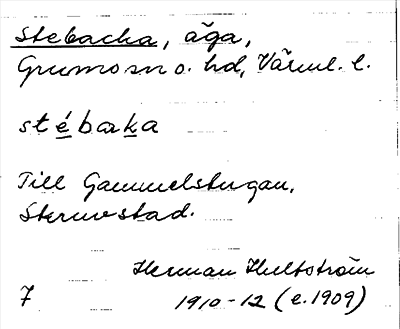 Stebacka, äga,
Grums sn o. hd, Värml. l.
stébaka
Till Gammelstugan,
Stenvstad.
Herman Hultström
7 1910-12 (e. 1909)